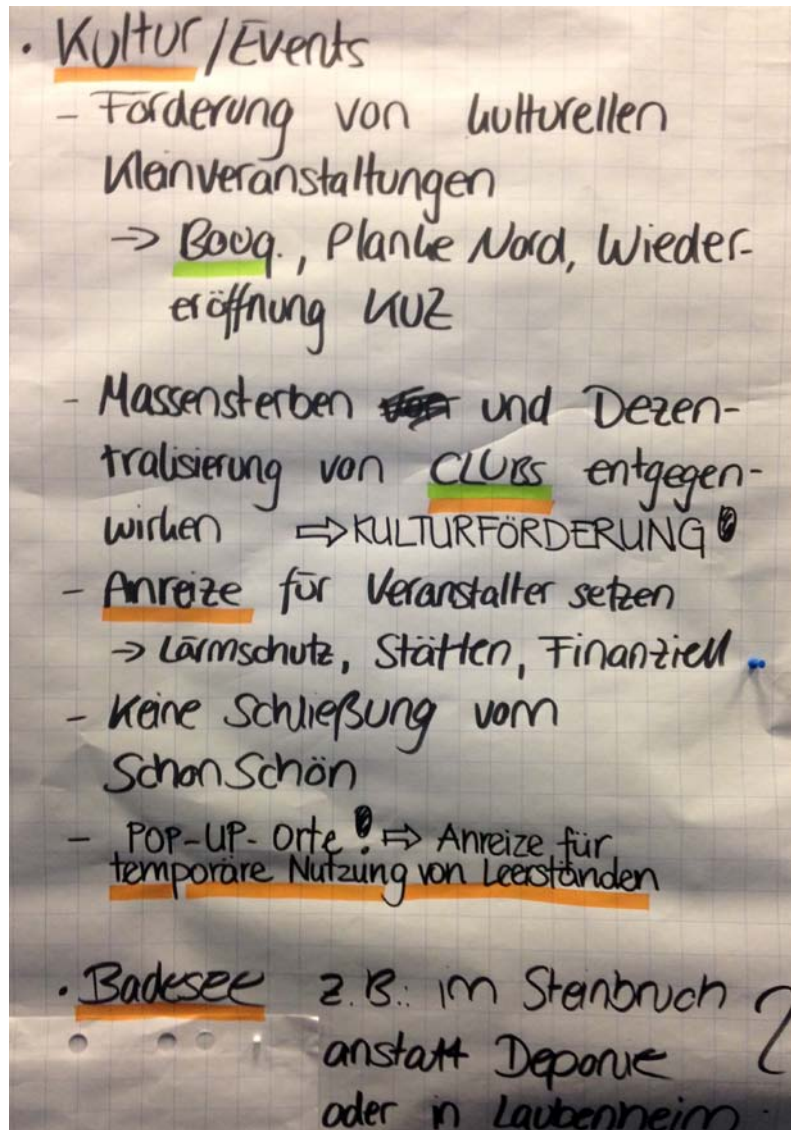 • Kultur/Events
- Förderung von kulturellen
Kleinveranstaltungen
-> Booq., Planke Nord, Wieder-
eröffnung KUZ
- Massensterben und Dezen-
tralisierung von CLUBS entgegen-
wirken ⇨ KULTURFÖRDERUNG!
- Anreize für Veranstalter setzen
-> Lärmschutz, Stätten, Finanziell
- Keine Schließung vom
SchonSchön
- POP-UP-Orte! ⇨ Anreize für
temporäre Nutzung von Leerständen
• Badesee z.B.: im Steinbruch ?
anstatt Deponie
oder in Laubenheim